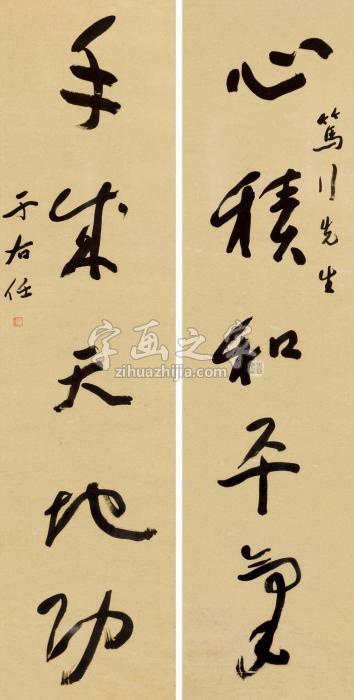 心積和平氣
篤行先生
手成天地功
于右任
字画之家
zihuazhijia.com